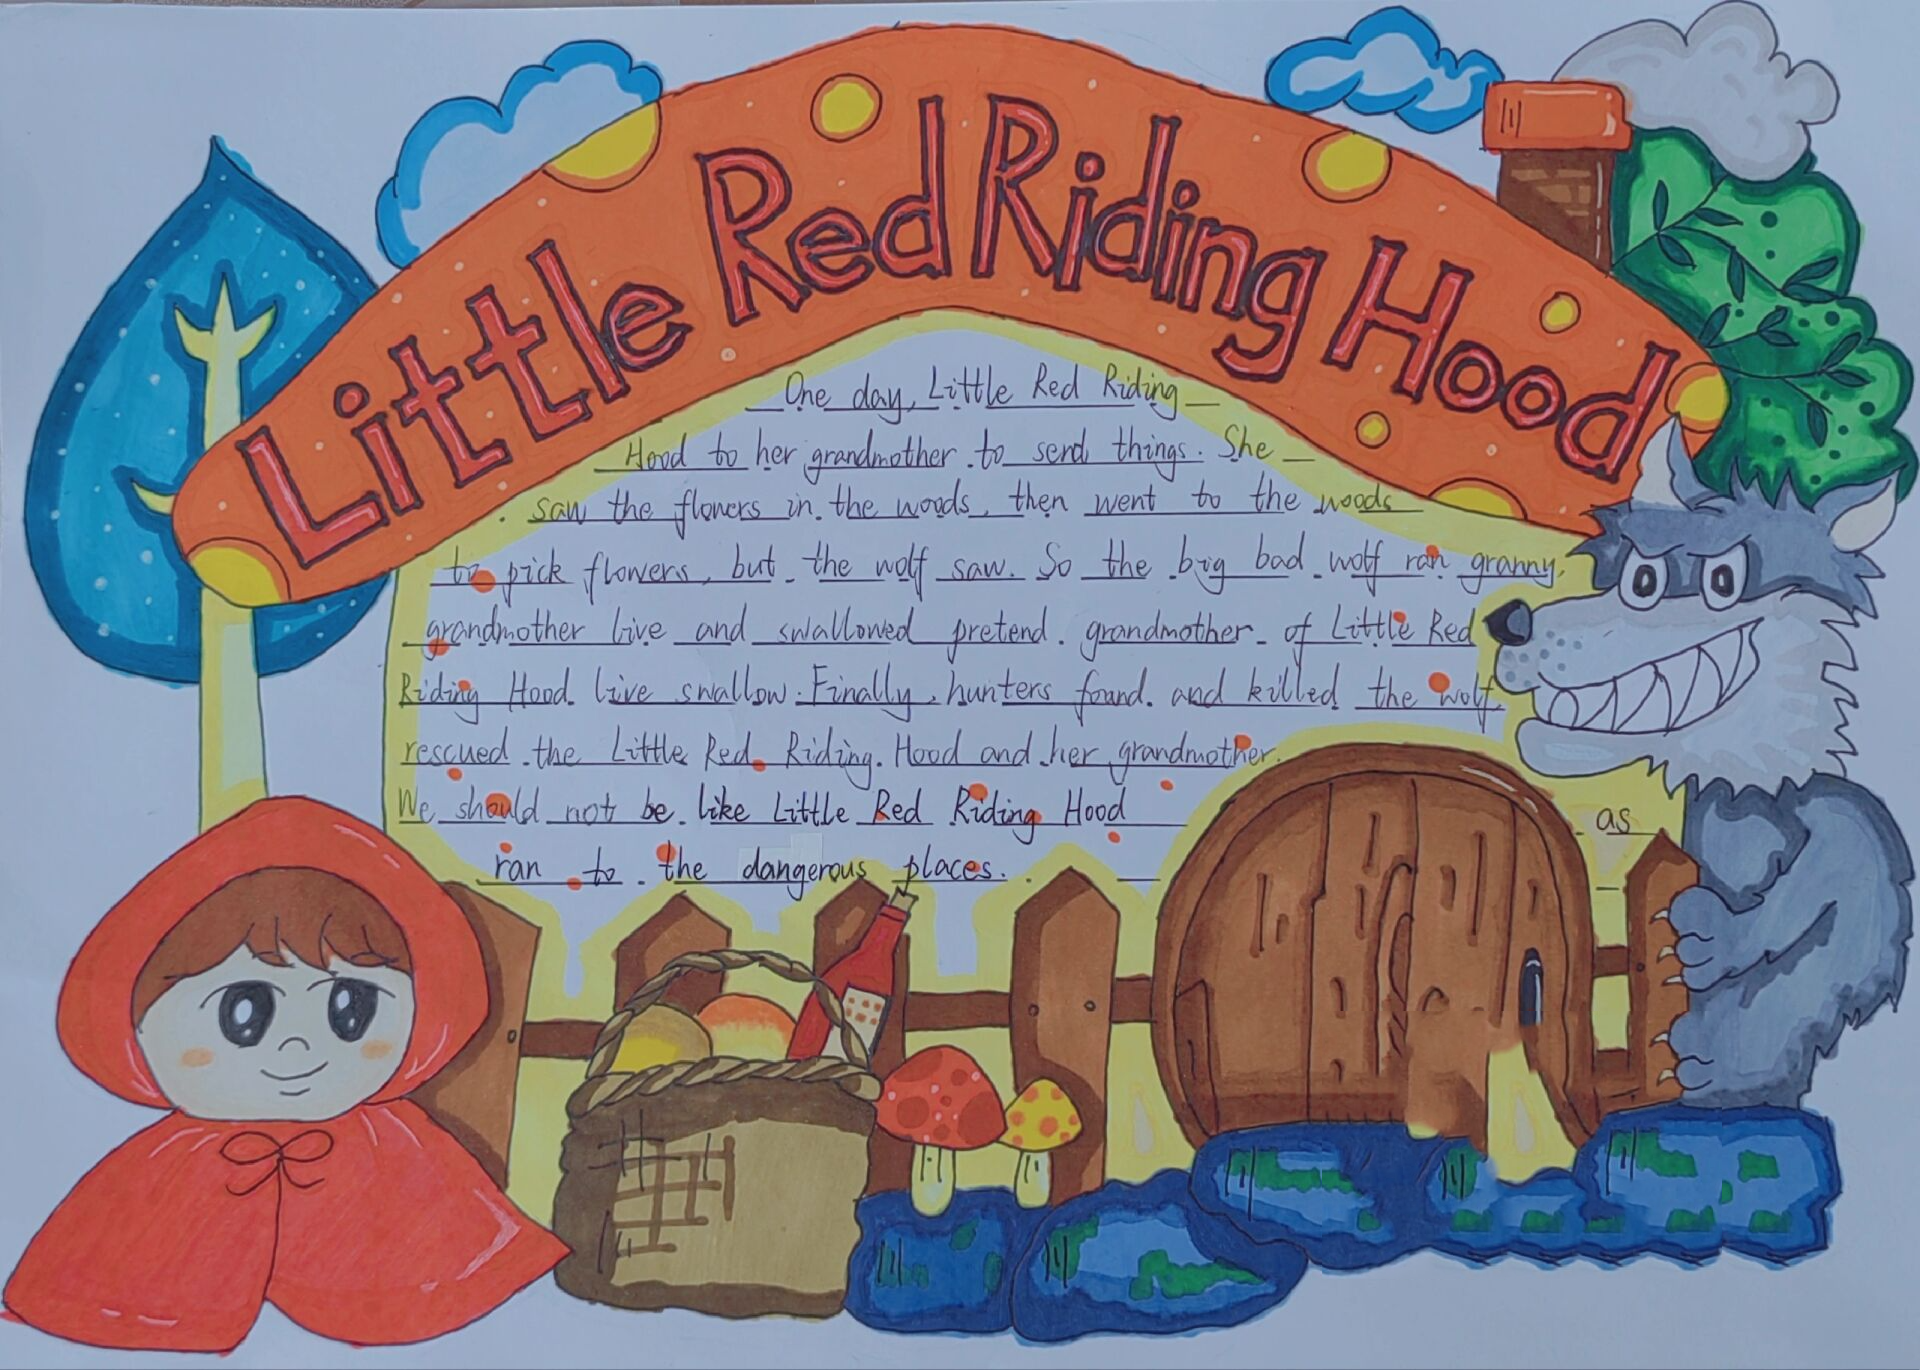 Little Red Riding Hood
One day, Little Red Riding
Hood to her grandmother to send things. She
saw the flowers in the woods, then went to the woods
to pick flowers, but the wolf saw. So the big bad wolf ran granny,
grandmother live and swallowed pretend grandmother of Little Red
Riding Hood live swallow. Finally, hunters found and killed the wolf,
rescued the Little Red Riding Hood and her grandmother.
We should not be like Little Red Riding Hood as
ran to the dangerous places.